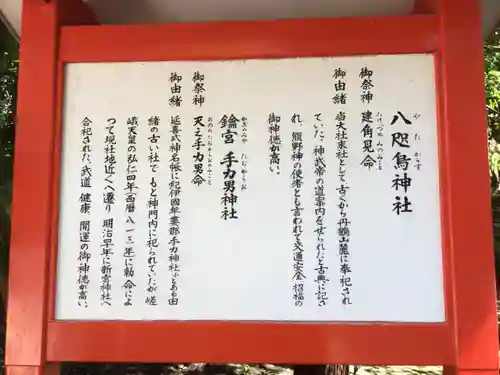 八咫烏神社
やたがらす
御祭神 建角見命
たけつぬみのみこと
御由緒 当大社末社として古くから丹鶴山麓に奉祀され
ていた。神武帝の道案内をせられたと古典に記さ
れ、熊野神の使者とも言われて交通安全 招福の
御神徳が高い。
鑰宮 手力男神社
かぎのみや たぢからお
御祭神 天之手力男命
あめのたぢからおのみこと
御由緒 延喜式神名帳に紀伊国牟婁郡手力神社とある由
緒の古い社で もと神門内に祀られていたが嵯
峨天皇の弘仁四年(西暦八一三年)に勅命によ
つて現社地近くへ遷り 明治早年に新宮神社へ
合祀された。武道 健康 開運の御神徳が高い。